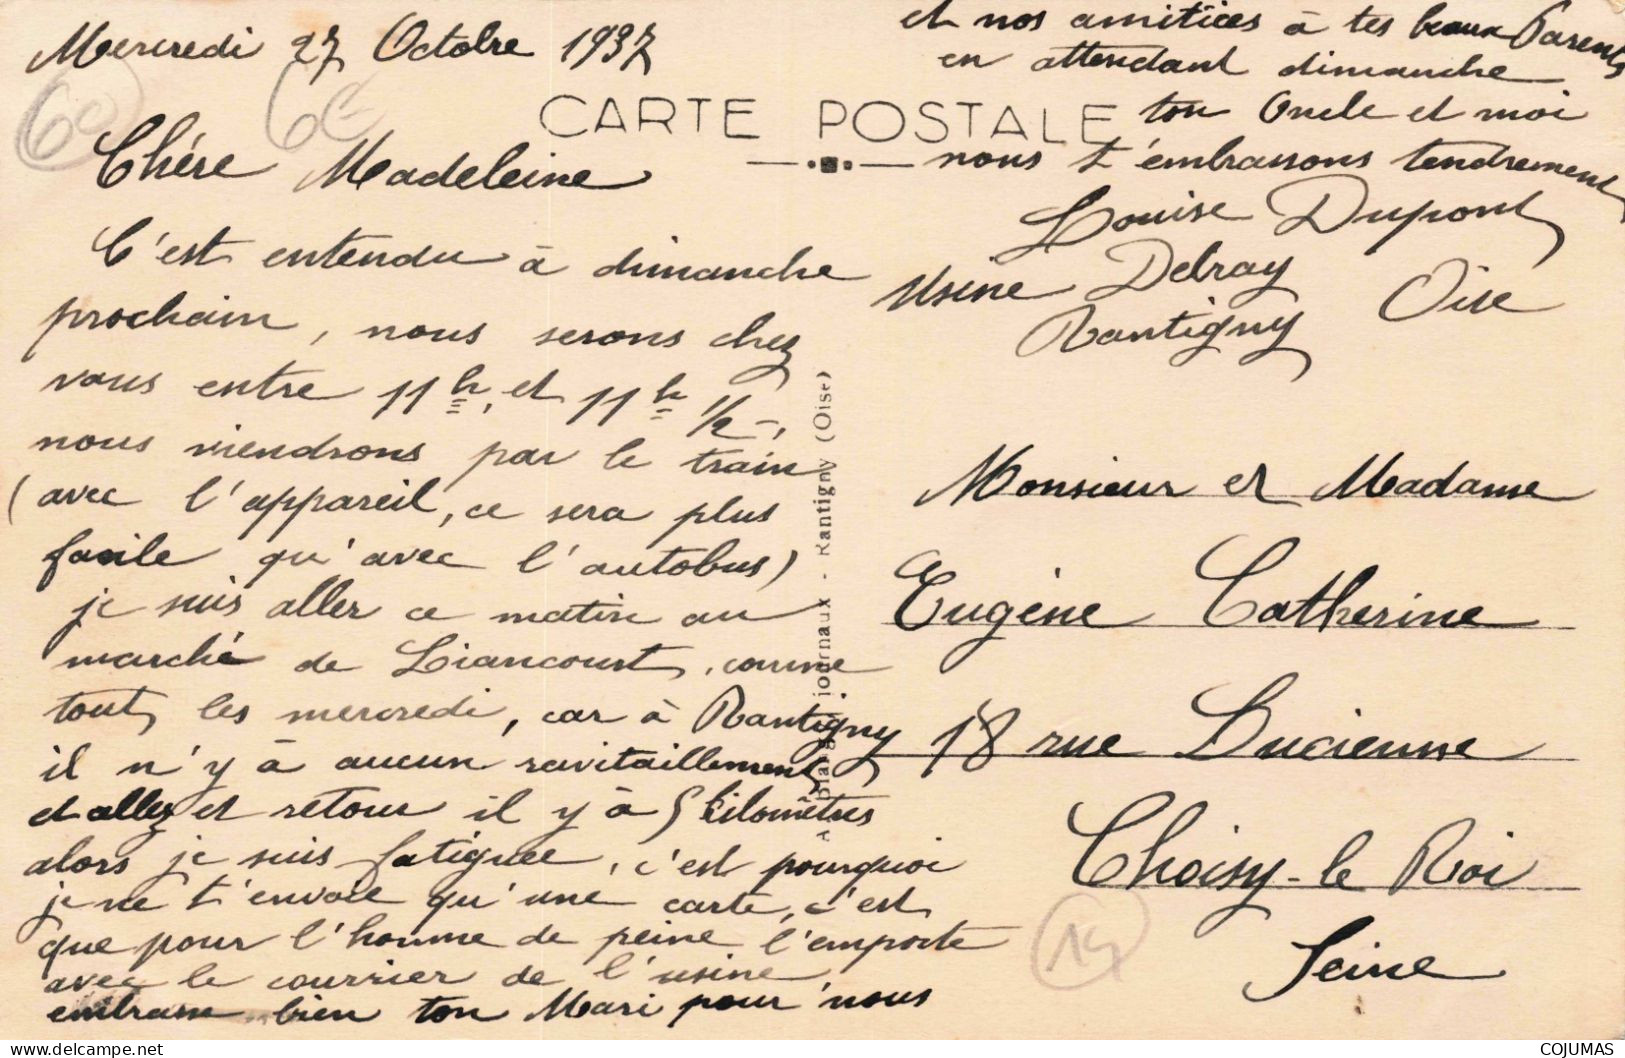 Mercredi 27 Octobre 1937
Chère Madeleine
C'est entendu à dimanche
prochain, nous serons chez
vous entre 11h, et 11h 1/2,
nous viendrons par le train
(avec l'appareil, ce sera plus
facile qu'avec l'autobus)
je suis aller ce matin au
marché de Liancourt, comme
tout les mercredi, car à Rantigny
il n'y à aucun ravitaillement
et allez et retour il y à 5 kilomètres
alors je suis fatiguée, c'est pourquoi
je ne t'envoie qu'une carte, c'est
que pour l'homme de peine l'emporte
avec le courrier de l'usine
embrasse bien ton Mari pour nous
et nos amitiées à tes beaux Parents
en attendant dimanche
ton Oncle et moi
nous t'embrassons tendrement
Louise Dupont
Usine Delray
Rantigny Oise
CARTE POSTALE
journaux - Rantigny (Oise)
Monsieur et Madame
Eugène Catherine
18 rue Lucienne
Choisy-le Roi
Seine
60
6€
COJUMAS